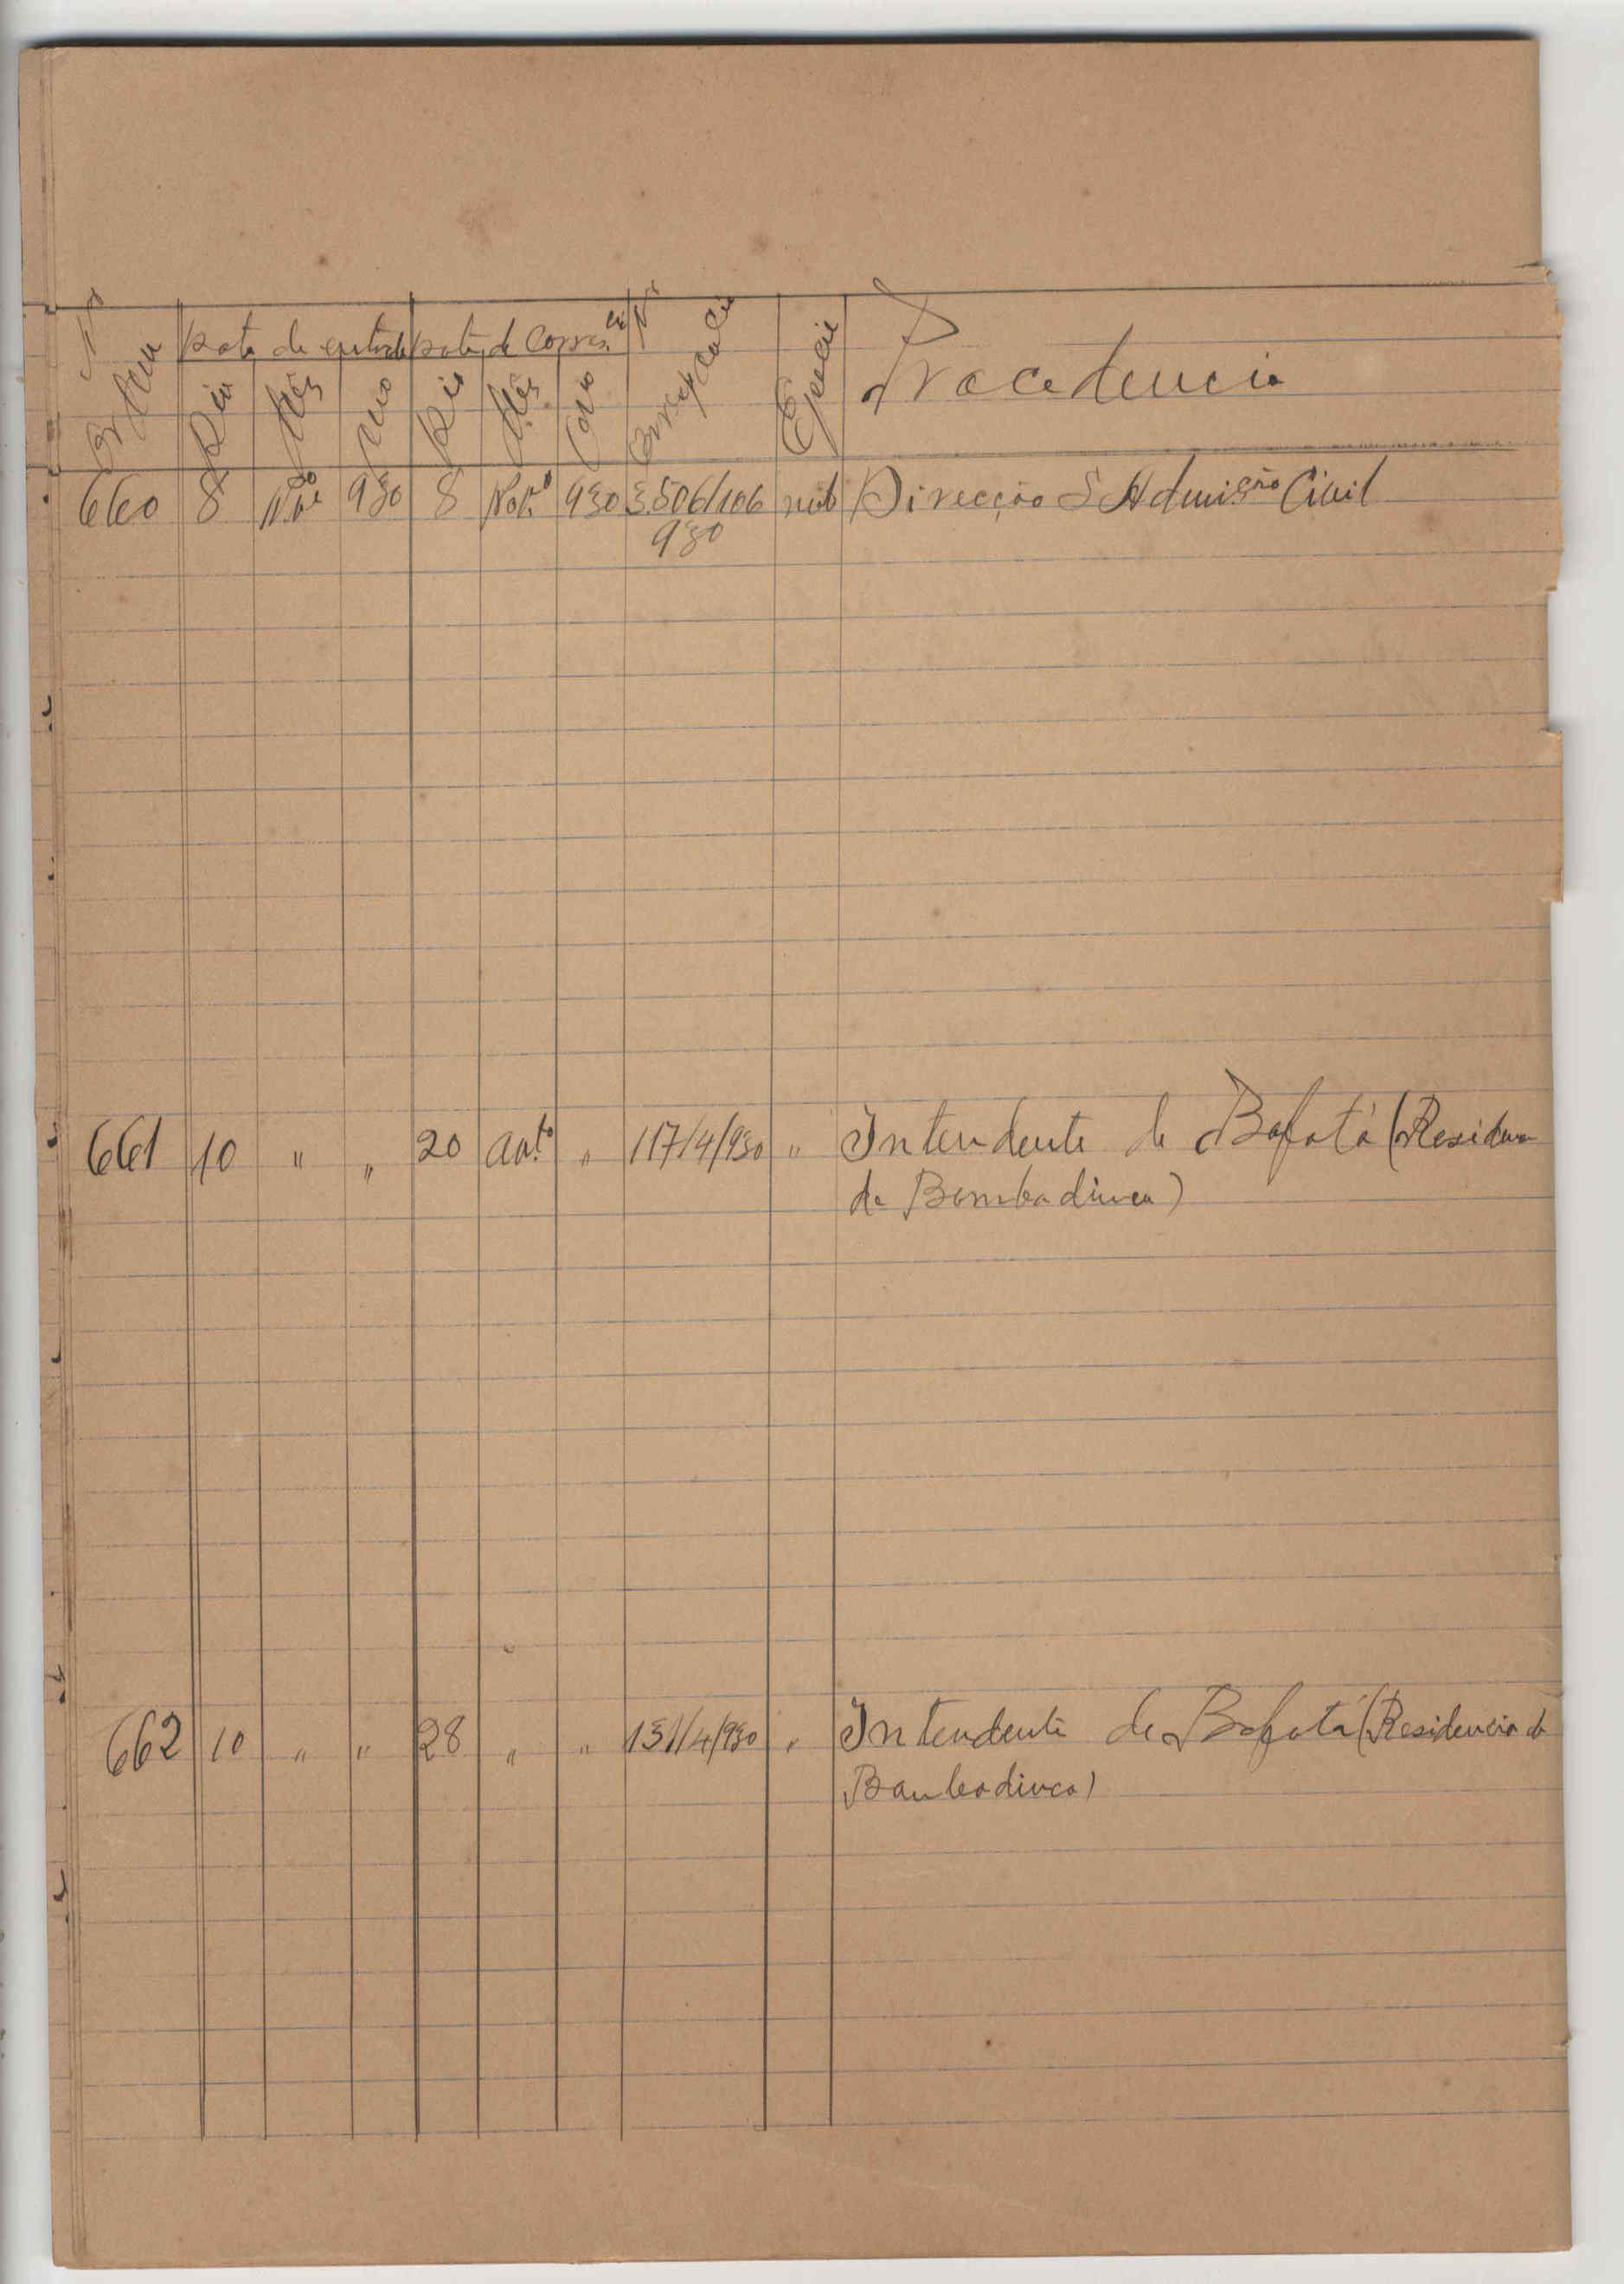 Nº Ordem | Data de entrada | Data de Corres.cia | Nº Corresp.cia | Especie | Procedencia
Dia | Mês | Ano | Dia | Mês | Ano
660 | 8 | Nov.º | 930 | 8 | Nov.º | 930 | 3.506/106 | Direcção S Admnisção Civil
930
661 | 10 | " | " | 20 | out.º | " | 117/4/930 | " | Intendente de Bafatá (Residen
de Bambadinca)
662 | 10 | " | " | 28 | " | " | 131/4/930 | " | Intendente de Bafatá (Residencia de
Bambadinca)